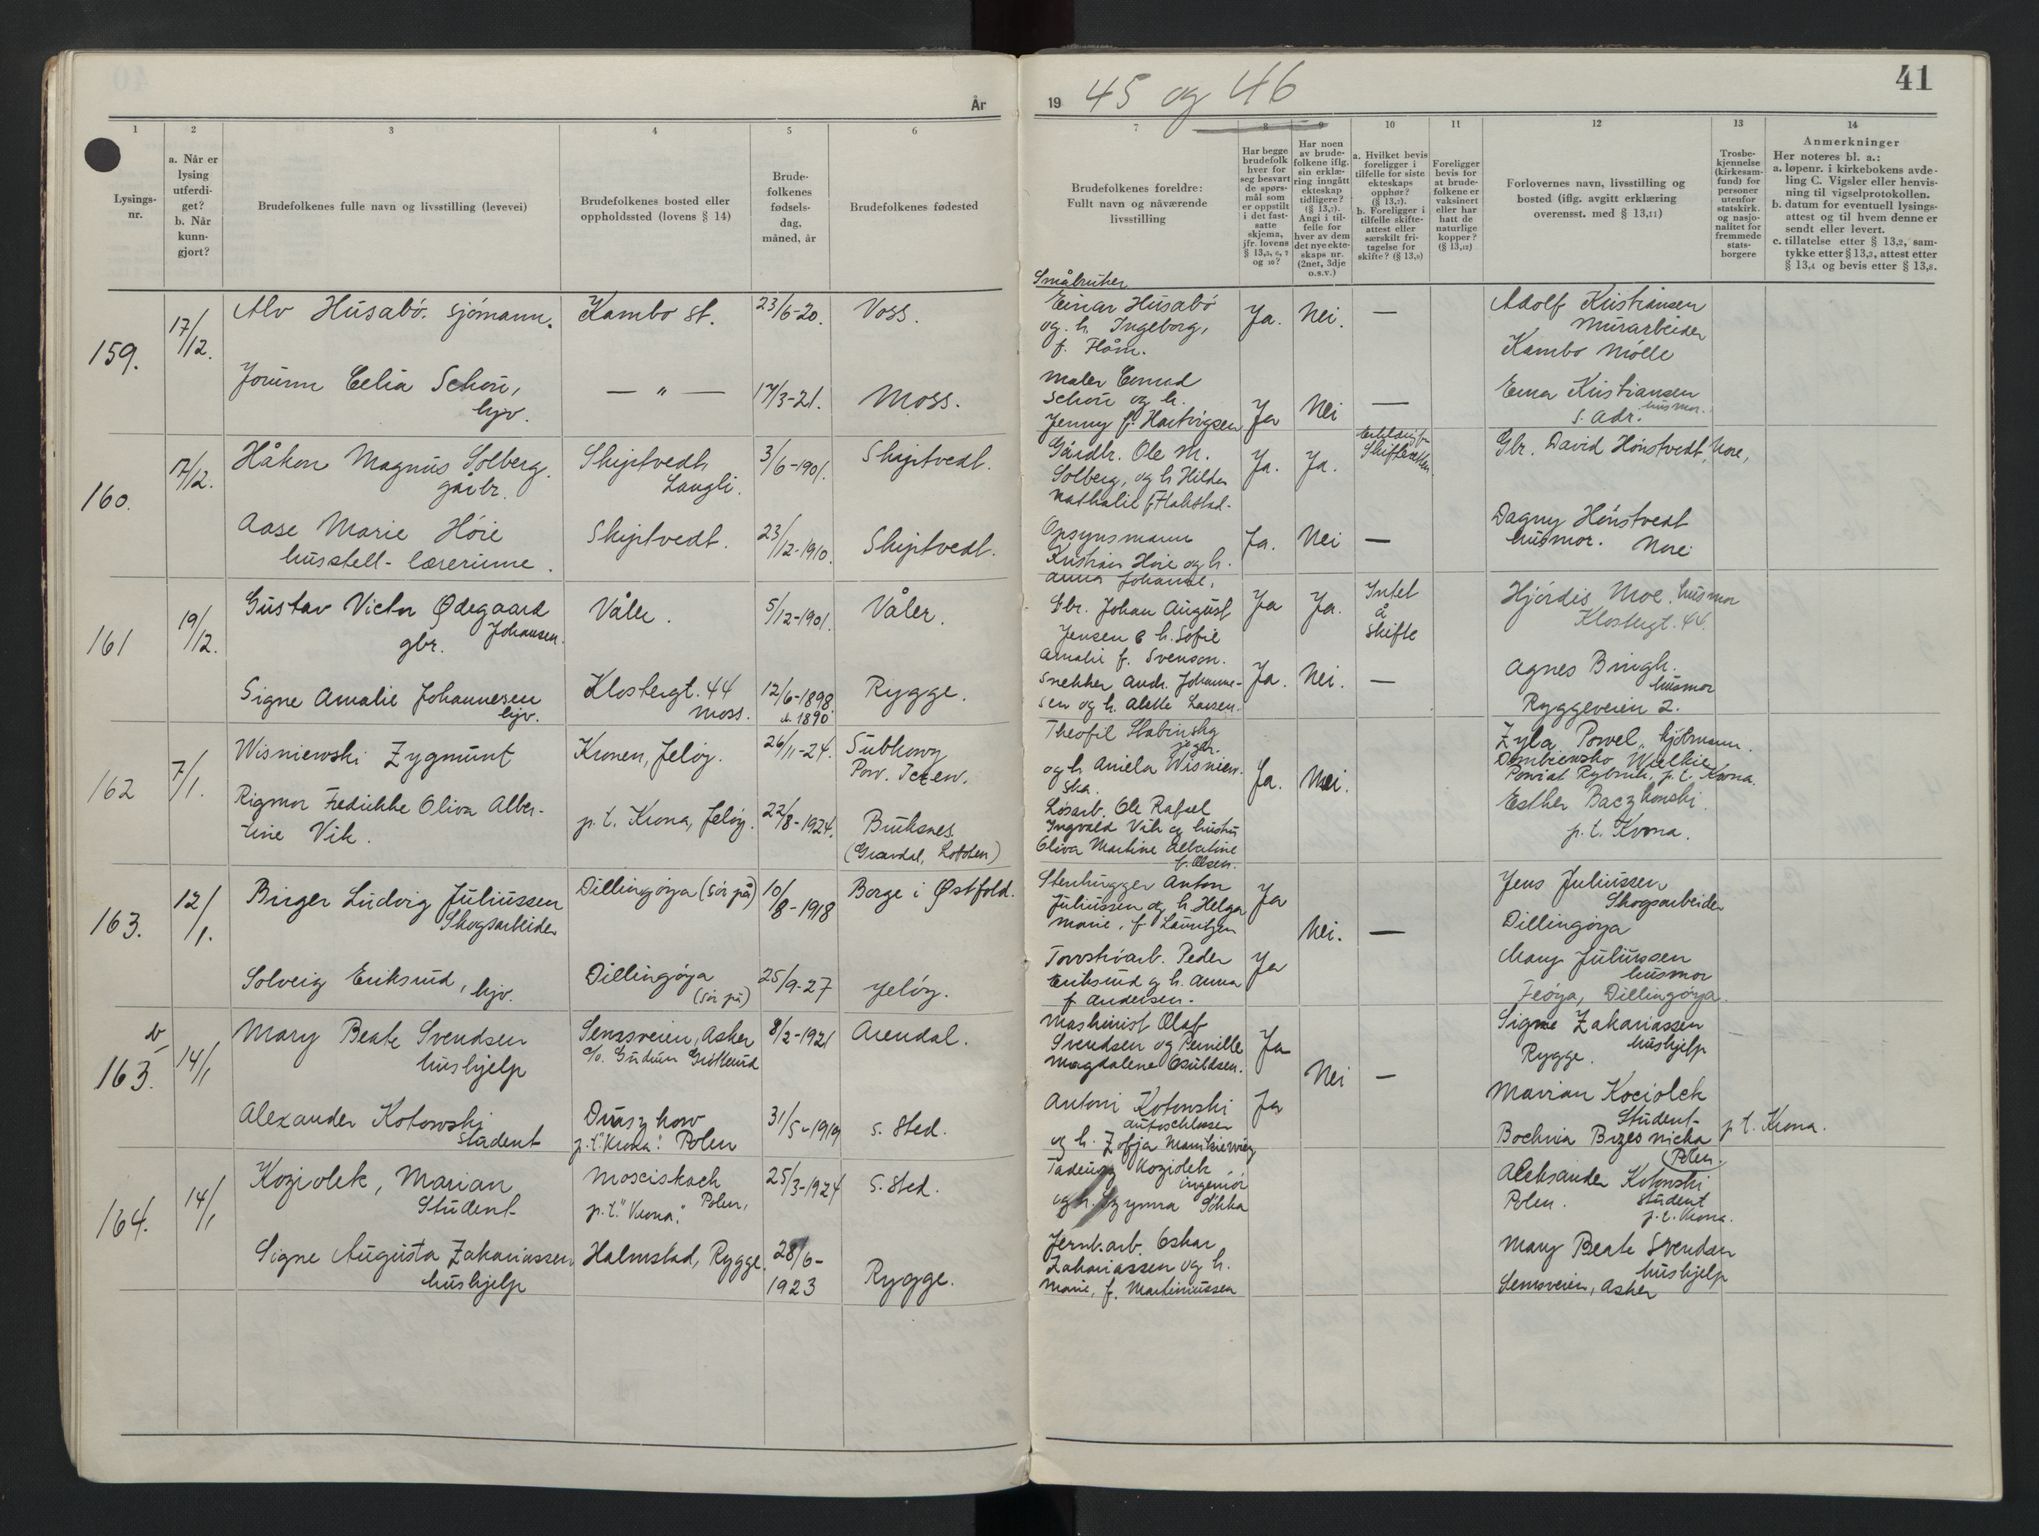 År
19 45 og 46
41
1
2
3
4
5
6
7
8
9
10
11
12
13
14
Lysings-
nr.
a. Når er
lysing
utferdi-
get?
b. Når
kunn-
gjort?
Brudefolkenes fulle navn og livsstilling (levevei)
Brudefolkenes bosted eller
oppholdssted (lovens § 14)
Brude-
folkenes
fødsels-
dag,
måned, år
Brudefolkenes fødested
Brudefolkenes foreldre:
Fullt navn og nåværende
livsstilling
Har begge
brudefolk
hver for
seg besvart
de spørs-
mål som
er oppstilt
i det fast-
satte
skjema,
jfr. lovens
§ 13,5, 6, 7
og 10?
Har noen
av brude-
folkene iflg.
sin erklæ-
ring inngått
ekteskap
tidligere?
(§ 13,7).
Angi i til-
felle for
hver av dem
det nye ekte-
skaps nr.
(2net, 3dje
o.s.v.)
a. Hvilket bevis
foreligger i
tilfelle for siste
ekteskaps
opphør?
(§ 13,7).
b. Foreligger i
tilfelle skifte-
attest eller
særskilt fri-
tagelse for
skifte? (§ 13,8)
Foreligger
bevis for
at brude-
folkene er
vaksinert
eller har
hatt de
naturlige
kopper?
(§ 13,12)
Forlovernes navn, livsstilling og
bosted (iflg. avgitt erklæring
overensst. med § 13,11)
Trosbe-
kjennelse
(kirkesam-
fund) for
personer
utenfor
statskirk.
og nasjo-
nalitet for
fremmede
stats-
borgere
Anmerkninger
Her noteres bl. a.:
a. løpenr. i kirkebokens avde-
ling C. Vigsler eller henvis-
ning til vigselprotokollen.
b. datum for eventuell lysings-
attest og til hvem denne er
sendt eller levert.
c. tillatelse etter § 13,2, sam-
tykke etter § 13,3, attest etter
§ 13,4 og bevis etter § 13,8.
159.
17/12.
Alv Husabö. sjömann.
Kambo st.
23/6-20.
Voss.
Småbruker
Einar Husabö
og h. Ingeborg,
f. Flåm.
Ja.
Nei.
—
Adolf Kristiansen
Murarbeider
Kambo Mölle
Jorunn Celia Schou,
hjv.
— " —
17/3-21.
Moss.
Maler Conrad
Schou og h.
Jenny f. Hartvigsen
Ja
Nei
—
Erna Kristiansen
husmor.
s. adr.
160.
17/12.
Håkon Magnus Solberg.
gårbr.
Skiptvedt
Langli.
3/6-1901.
Skiptvedt.
Gårdbr. Ole M.
Solberg, og h. Hilda
Nathalie f. Hakstad.
Ja.
Ja.
Skifteretten
Gbr. David Hönstvedt, Nore,
Aase Marie Höie
husstell-lærerinne.
Skiptvedt.
23/12-1910.
Skiptvedt.
Opsynsmann
Kristian Höie og h.
Anna Johanne.
Ja.
Nei
—
Dagny Hönstvedt
husmor. Nore
161
19/12.
Gustav Victor Ødegaard
Johansen.
gbr.
Våler.
5/12-1901.
Våler.
Gbr. Johan August
Jensen & h. Sofie
Amalie f. Svenson.
Ja
Ja.
Intet
å
skifte
Hjördis Moe. husmor
Klostergt. 44.
Signe Amalie Johannesen
hjv.
Klostergt. 44
Moss.
12/6-1898
1890
Rygge.
Snekker Andr. Johanne-
sen og h. Alette Larsen.
Ja.
Nei.
—
Agnes Bingh.
husmor
Ryggeveien 2.
162
7/1.
Wisniewski Zygmunt
Kronen, Jelöy.
26/11-24.
Subkowy
Pow. Tczew.
Theofil Skabinsky
jeger.
og h. Aniela Wisniew-
ska.
Ja.
Nei.
Zyla Powel,
Dembiensko Wielkie
Powiat Rybnik, p. t. Krona.
Rigmor Fredrikke Oliva Alber-
tine Vik.
p. t. Krona, Jelöy.
22/8-1924.
Buksnes
(Gravdal, Lofoten)
Lösarb. Ole Rafael
Ingvald Vik og hustru
Oliva Martine Albertine
f. Olsen.
Esther Baczkonski.
p. t. Krona.
163.
12/1.
Birger Ludvig Juliussen
Skogsarbeider
Dillingöya (sör på)
10/8-1918
Borge i Østfold.
Stenhugger Anton
Juliussen og h. Helga
Marie, f. Lauritzen
Ja
Nei.
—
Jens Juliussen
Skogsarbeider
Dillingöya
Solveig Eriksrud, hjv.
Dillingöya
(sör på)
25/9-27
Jelöy.
Torvströarb. Peder
Eriksrud og h. Anna
f. Andersen.
Ja
Mary Juliussen
husmor
Jeöya, Dillingöya.
b/
163.
14/1
Mary Beate Svendsen
hushjelp
Semsveien, Asker
c/o. Gudrun Grötterud
8/2-1921
Arendal.
Maskinist Olaf
Svendsen og Pernille
Magdalene Osuldsen.
Ja
Nei
—
Signe Zakariassen
hushjelp
Rygge.
Alexander Kotowski
student
Duszkow
p.t. "Krona". Polen
31/5-1919
s. sted.
Antoni Kotowski
autoschlosser
og h. Zofja
Ja
Marian Kociolek
Student
Bochnia Brzesnicka
Polen.
p. t. Krona.
164.
14/1
Koziolek, Marian
Student
Mosciskach
p.t. "Krona". Polen,
25/3-1924
s. sted.
Tadeusz Koziolek
ingeniör
og h. Szyma Sókka
Aleksander Kotowski
Polen. student
p. t. Krona.
Signe Augusta Zakariassen
hushjelp
Halmstad, Rygge.
28/6-
1923
Rygge.
Jernb.arb. Oskar
Zakariassen og h.
Marie, f. Martiniussen
Mary Beate Svendsen
hushjelp
Semsveien, Asker